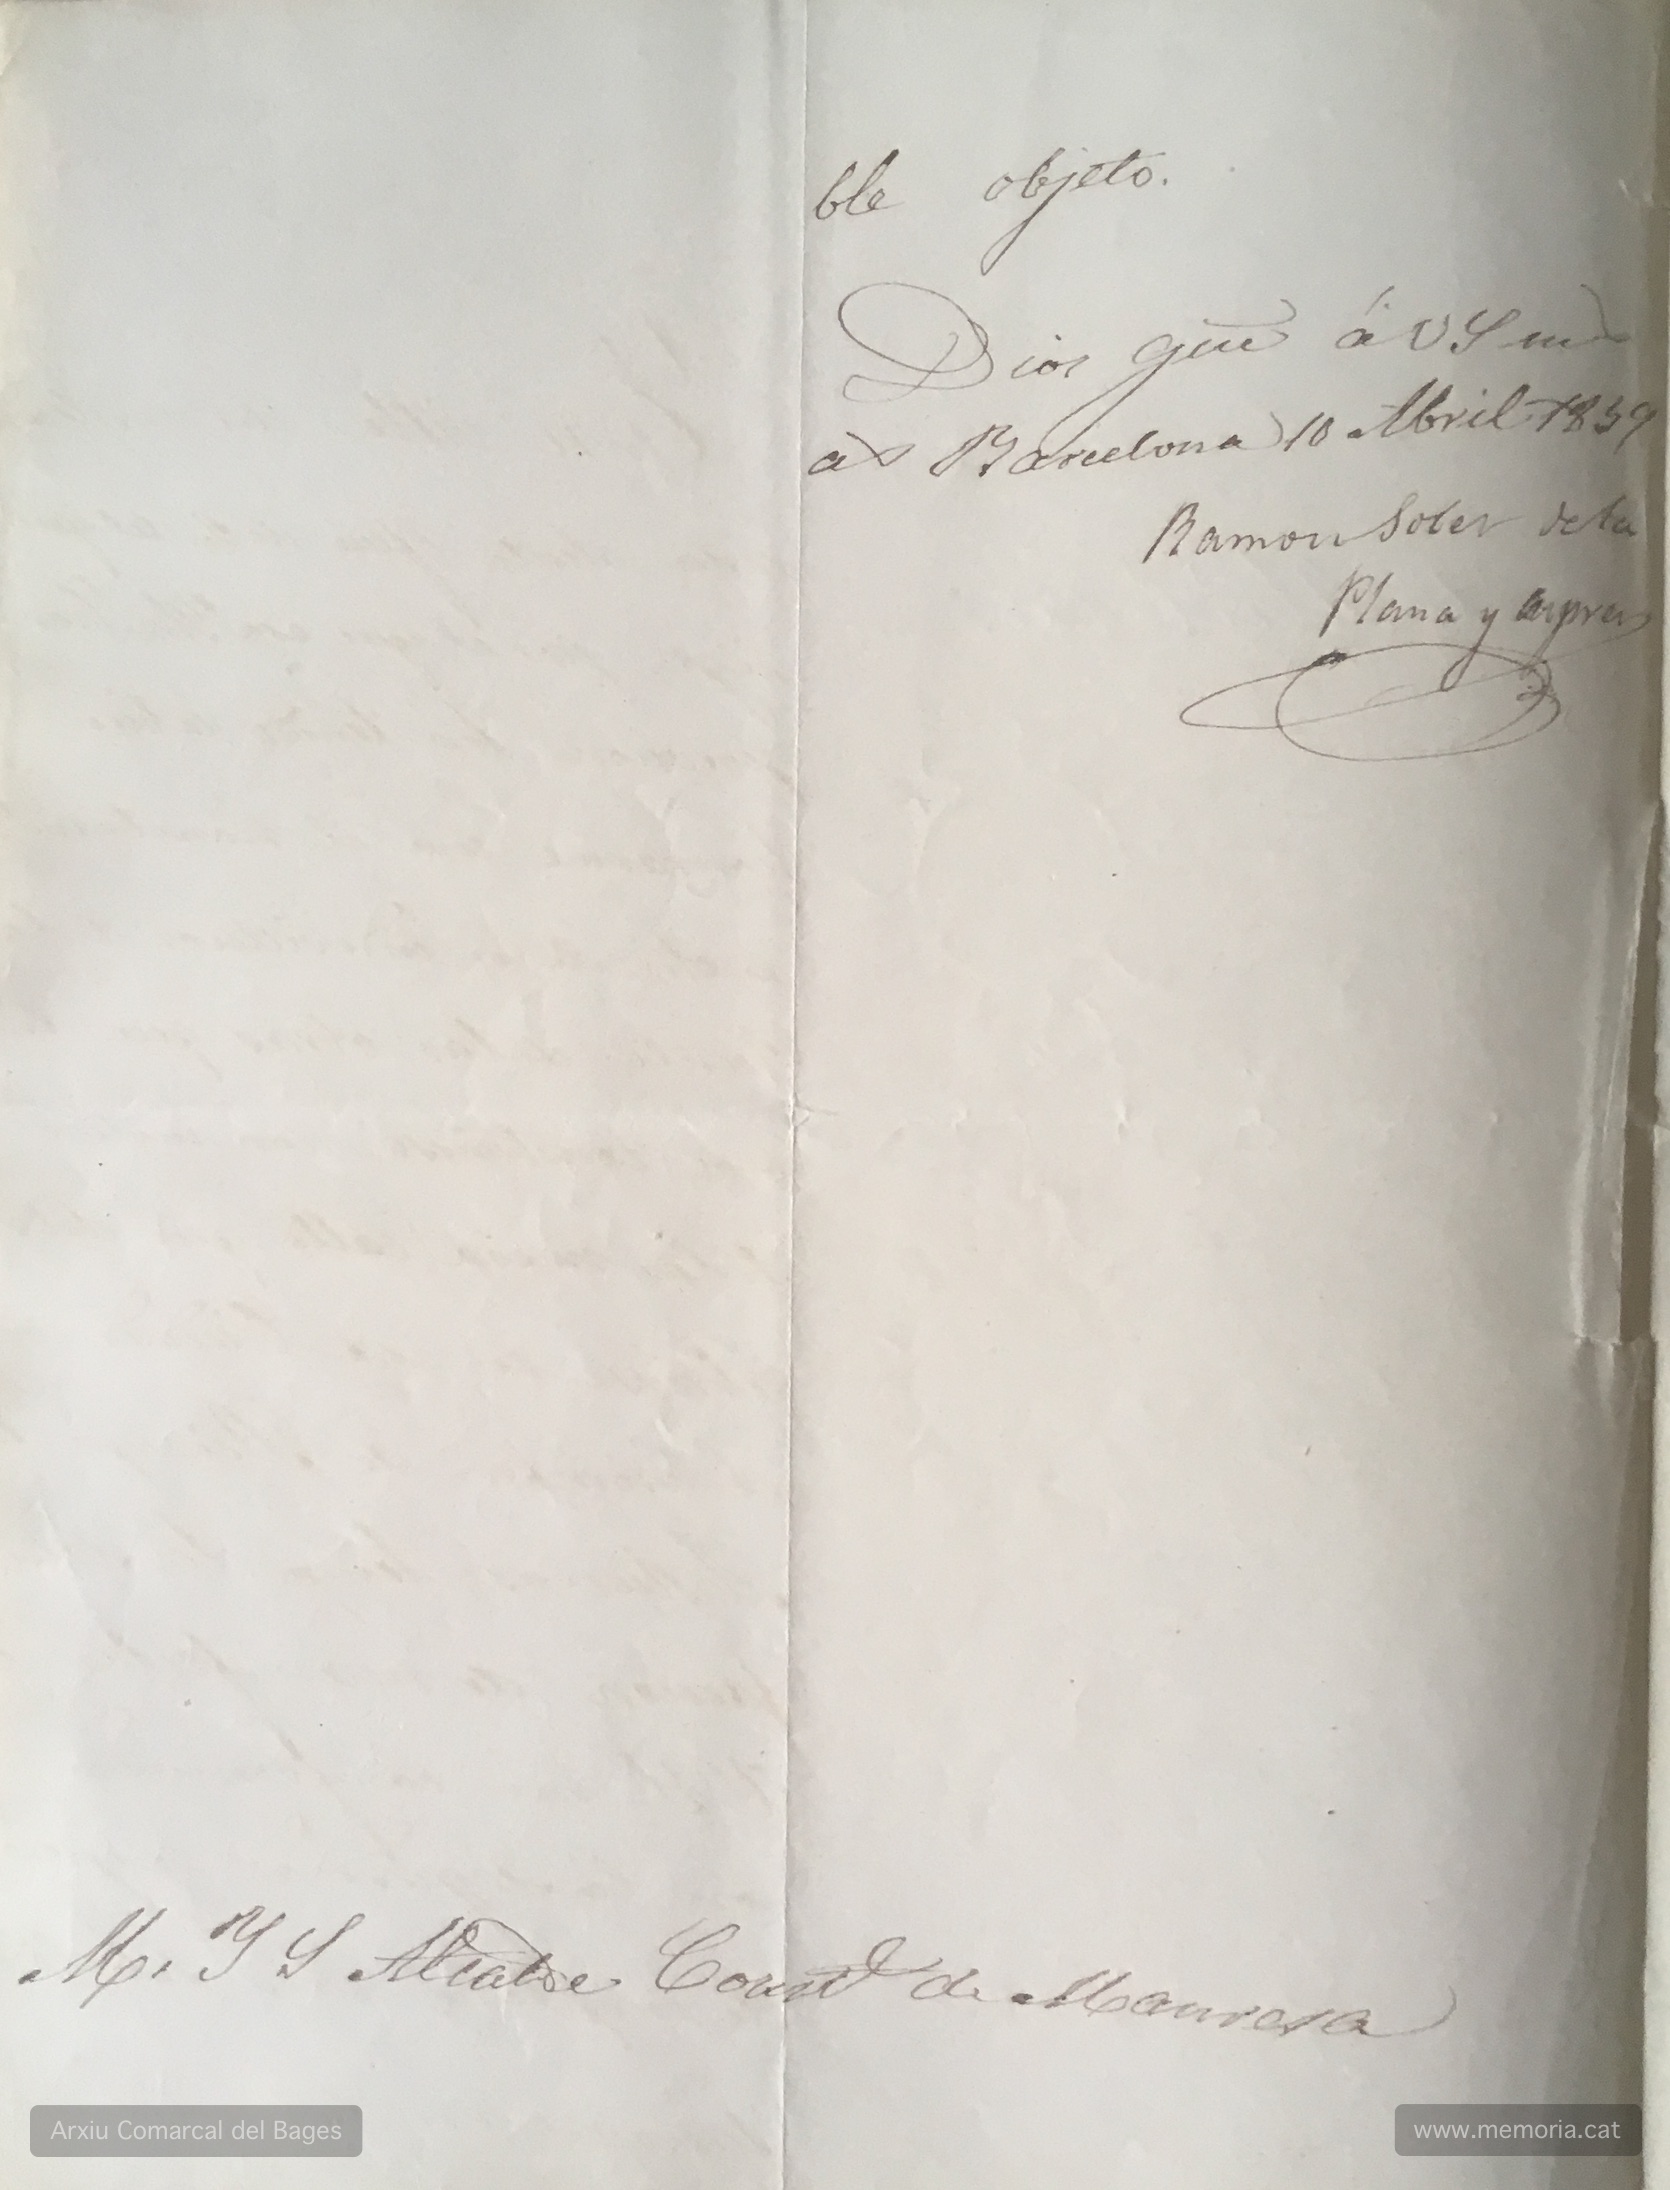 ble objeto.
Dios gue á VS ms
as Barcelona 10 Abril 1839
Ramon Soler de la
Plana y
M. Y S Alcalde Constl de Manresa
Arxiu Comarcal del Bages
www.memoria.cat